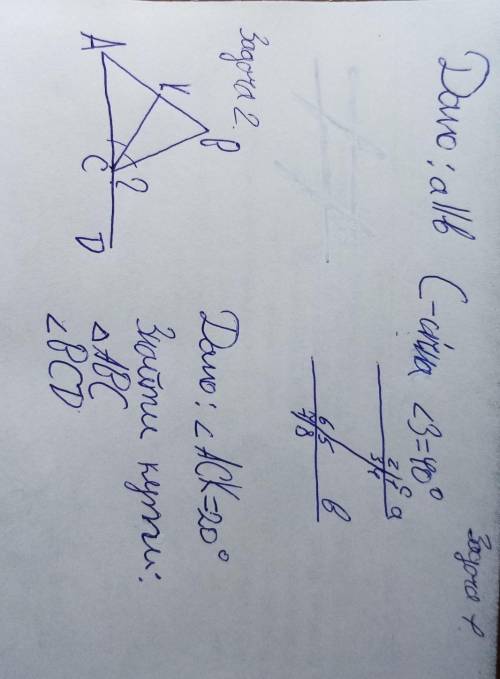 Задача 1.
Дано: a||b C-січна ∠3=40°
2 1 c a
3 4
6 5 b
7 8
Задача 2.
A K B
C ? D
Дано: ∠ACK=20°
Знайти кути:
△ABC
∠BCD